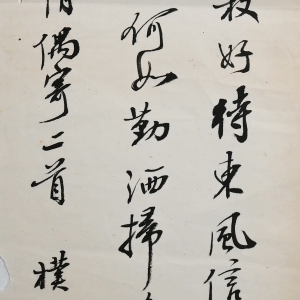 最好待東風信
何如勤洒掃
情偶寄二首 樸